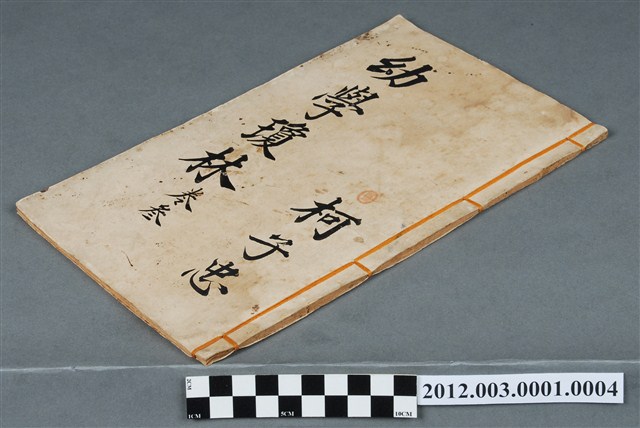 幼學瓊林
卷叁
柯子忠
2CM
1CM
5CM
10CM
2012.003.0001.0004